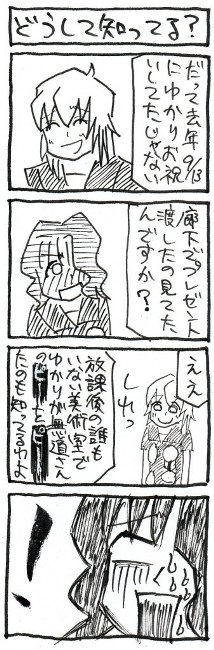 どうして知ってる?
だって去年9/13
にゆかりお祝
いしてたじゃない
廊下でプレゼント
渡したの見てた
んですか?
ええ
しれっ
放課後の誰も
いない美術室で
ゆかりが無道さん
の
と
たのも知ってるわよ
!